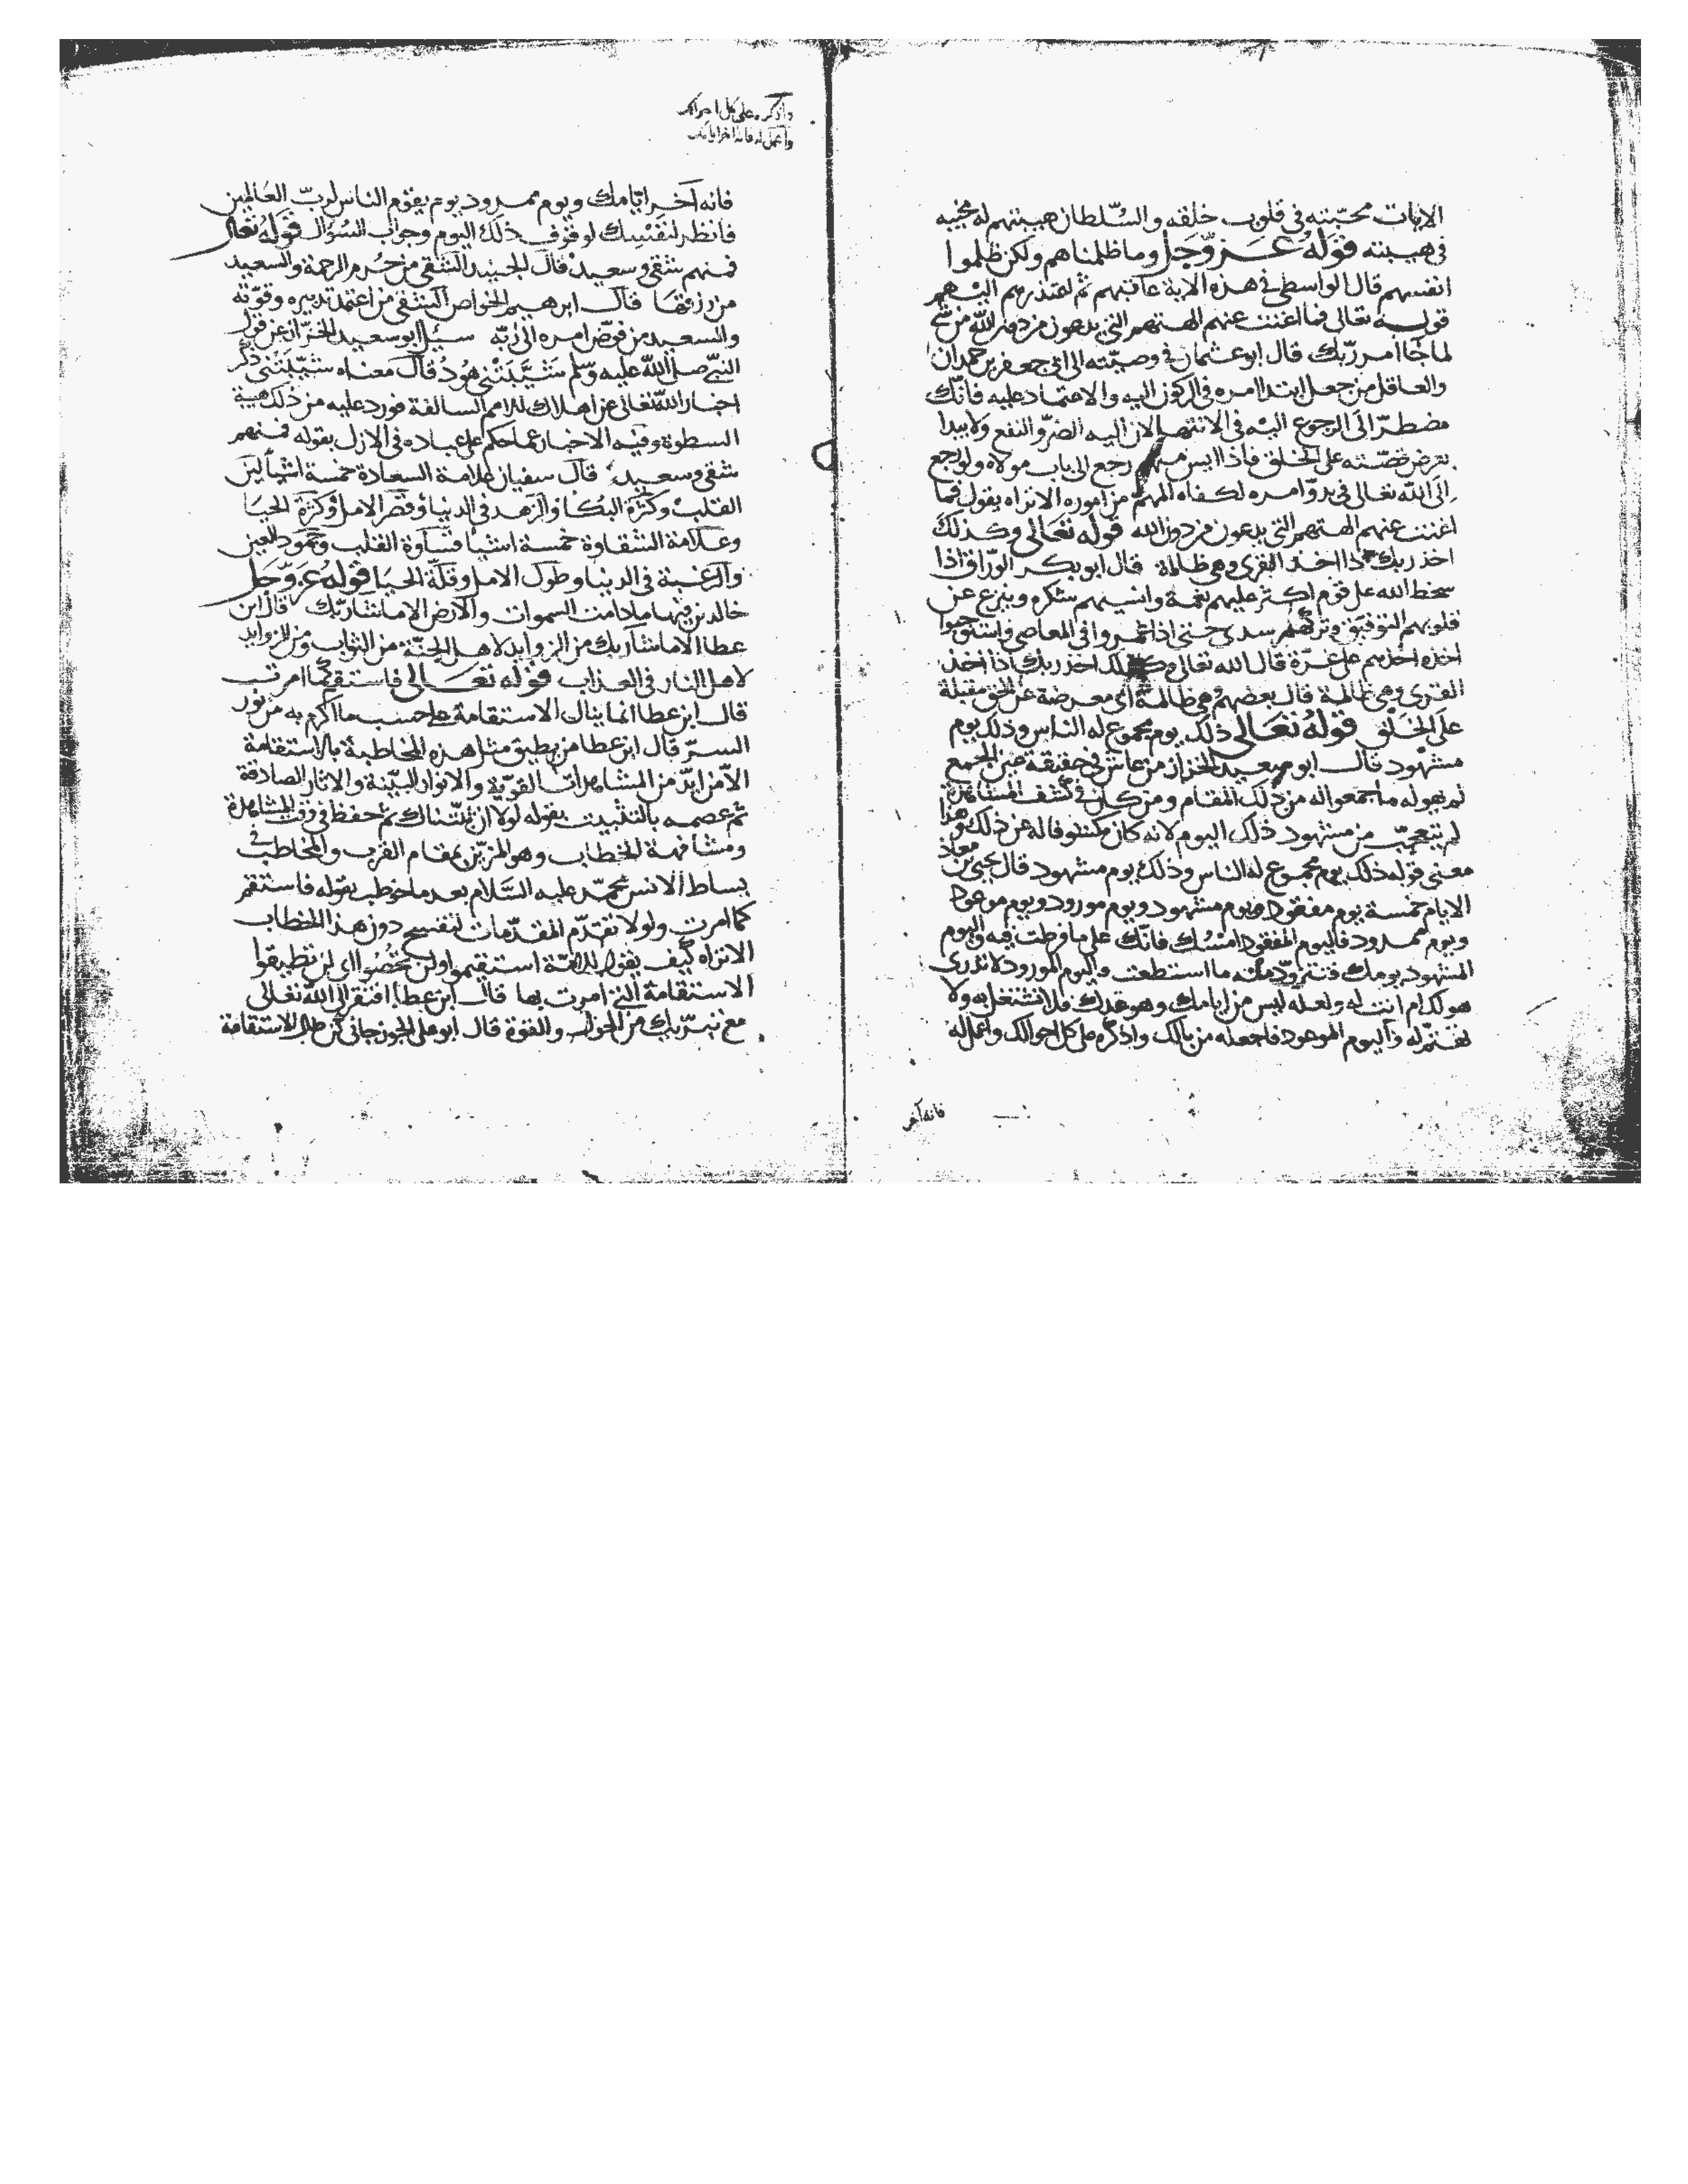 الايات محبّته فى قلوب خلقه والسّلطان هيبتهم له محبيه
فى هيبته قوله عزّ وجل وما ظلمناهم ولكن ظلموا
انفسهم قال الواسطى فى هذه الاية عاقبهم ثم اعتذر
قوله تعالى فما اغنت عنهم الهتهم التى يدعون من دون الله من شئ
لما جا امر ربّك قال ابو عثمان فى وصيّته الى ابى جعفر بن حمدان
والعاقل من جعل ابتدا امره فى الركون اليه والاعتماد عليه فانّك
مضطرّ الى الرجوع اليه فى الانتها لان اليه الضرّ والنفع ولا يبدا
بعرض قصّته على الخلق فاذا ايس منهم رجع الى باب مولاه ولو رجع
الى الله تعالى فى بدو امره لكفاه المهمّ من اموره الا تراه يقول فما
اغنت عنهم الهتهم التى يدعون من دون الله قوله تعالى وكذلك
اخذ ربك اذا اخذ القرى وهى ظالمة قال ابو بكر الورّاق اذا
سخط الله على قوم اكثر عليهم نعمة وانسيهم شكره وينزع عن
قلوبهم التوفيق وتركهم سدى حتى اذا فى المعاصى واستوجبوا
اخذه اخذهم على غرّة قال الله تعالى وكذلك اخذ ربك اذا اخذ
القرى وهى ظالمة قال بعضهم وهى ظالمة اى معرضة عن الحق مقبلة
على الخلق قوله تعالى ذلك يوم مجموع له الناس وذلك يوم
مشهود قال ابو سعيد الخراز من عاش فى حقيقة عين الجمع
لم يهوله ما جمعوا له من ذلك المقام ومن كان فى كشف المشاهدة
لم يتعجّب من مشهود ذلك اليوم لانه كان قاله عن ذلك وهذا
معنى قوله ذلك يوم مجموع له الناس وذلك يوم مشهود قال يحيى بن معاذ
الايام خمسة يوم مفقود ويوم مشهود ويوم مورود ويوم موعود
ويوم ممدود فاليوم المفقود امسك فانّك على ما فرطت فيه واليوم
المشهود يومك فتزوّد منه ما استطعت واليوم المورود لا تدرى
هو لك ام انت له ولعله ليس من ايامك وهو غدك فلا تشتغل به ولا
تغتمّ له واليوم الموعود فاجعله من بالك واذكره على كل احوالك واعمل له
فانه آخر
واذكره على كل احوالك
واعمل له فانه اخر ايامك
فانه آخر ايّامك ويوم ممدود يوم يقوم الناس لربّ العالمين
فانظر لنفسك لوقوف ذلك اليوم وجواب السؤال قوله تعالى
فمنهم شقى وسعيد قال الجنيد الشقى من حرم الرحمة والسعيد
من رزقها قال ابرهيم الخواص الشقى من اعتمد تدبيره وقوّته
والسعيد من فوّض امره الى ربّه سئل ابو سعيد الخرّاز عن قول
النبىّ صلى الله عليه وسلم شيّبتنى هود قال معناه شيّبتنى ذكر
اخبار الله تعالى عن اهلاك للامم السالفة فورد عليه من ذلك هيبة
السطوة وفيه الاخبار عما حكم على عباده فى الازل بقوله فمنهم
شقى وسعيد قال سفيان علامة السعادة خمسة اشيا لين
القلب وكثرة البكا والزهد فى الدنيا وقصر الامل وكثرة الحيا
وعلامة الشقاوة خمسة اشيا قساوة القلب وجمود العين
والرغبة فى الدنيا وطول الامل وقلّة الحيا قوله عزّ وجل
خالدين فيها ما دامت السموات والارض الا ما شا ربّك قال ابن
عطا الا ما شا ربك من الزوايد لاهل الجنّة من الثواب ومن الزوايد
لاهل النار فى العذاب قوله تعالى فاستقم كما امرت
قال ابن عطا انما ينال الاستقامة على حسب ما اكرم به من نور
السرّ قال ابن عطا من يطيق مثل هذه المخاطبة بالاستقامة
الا من ايّد من المشاهدات القويّة والانوار البيّنة والاثار الصادقة
ثم عصمه بالتثبيت بقوله لولا ان ثبّتناك ثم حفظ فى وقت المشاهدة
ومشافهة الخطاب وهو المزيّن بمقام القرب والمخاطب فى
بساط الانس محمّد عليه السّلام بعد ما خوطب بقوله فاستقم
كما امرت ولولا تقدّم المقدّمات لتفسح دون هذا الخطاب
الا تراه كيف يقول للامّة استقيموا ولن تحصوا اى لن تطيقوا
الاستقامة التى امرت بها قال ابن عطا افتقر الى الله تعالى
مع تبرّيك من الحول والقوة قال ابو على الجوزجانى كن طالب الاستقامة